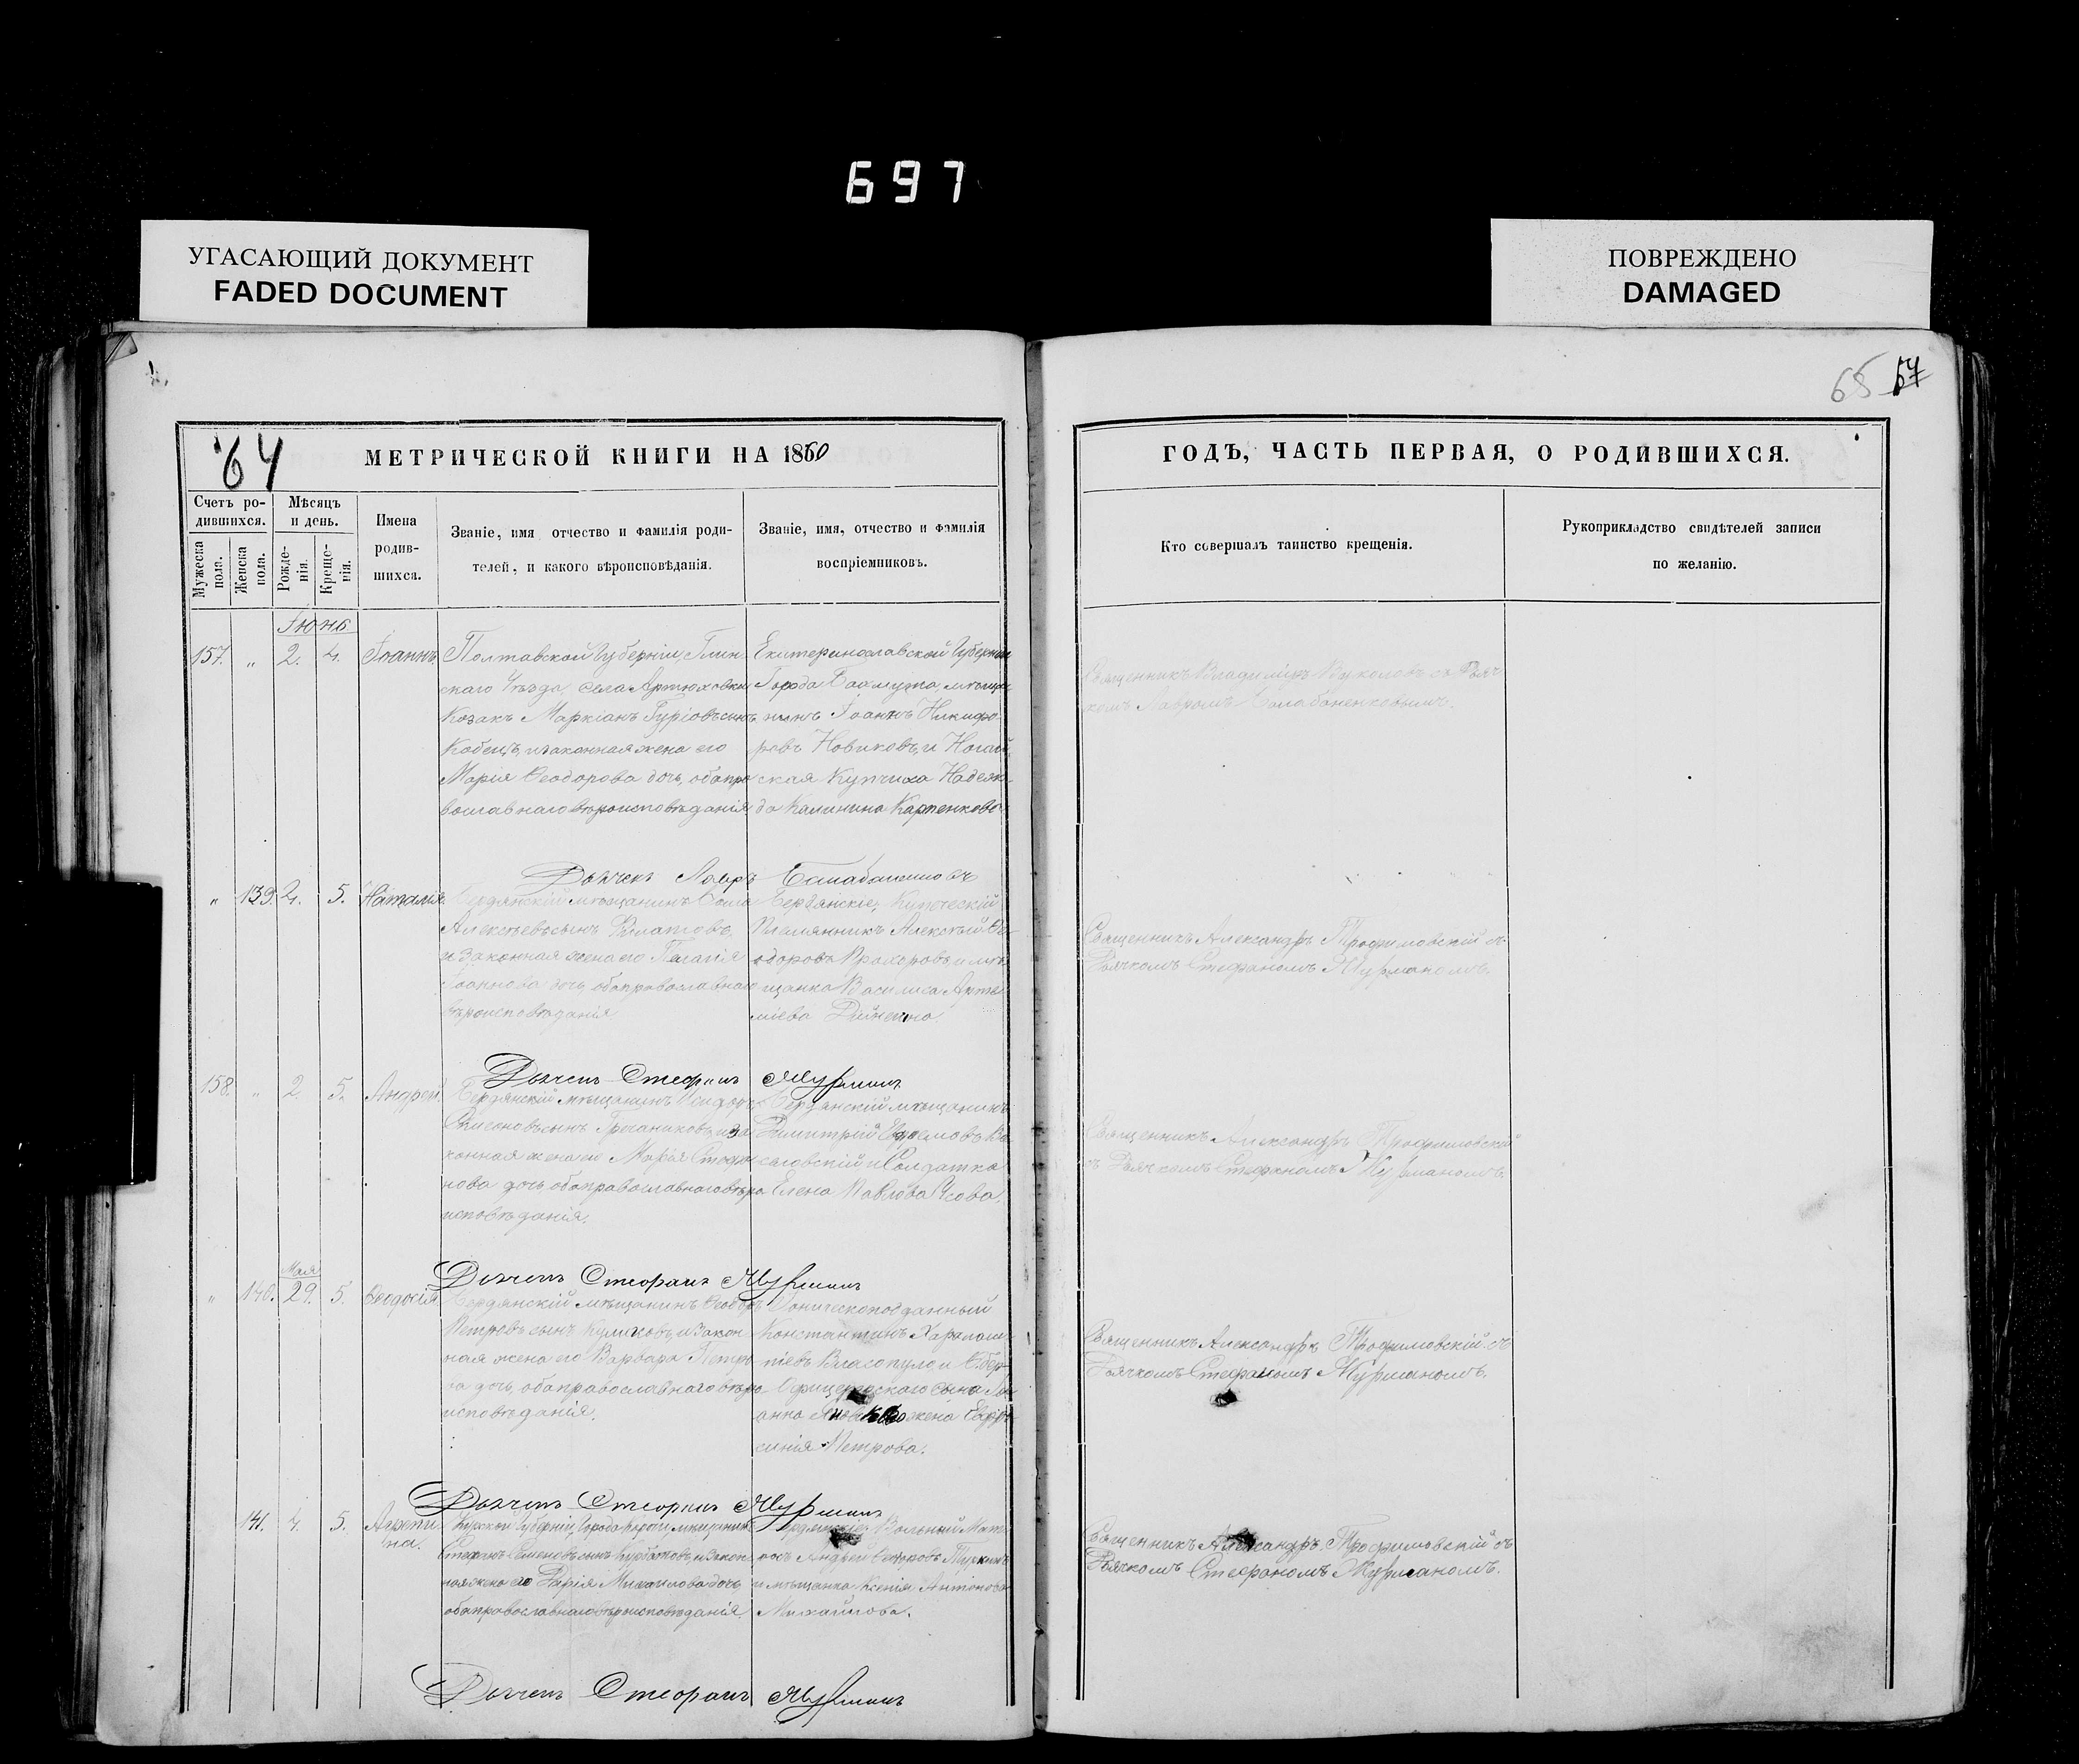 697
УГАСАЮЩИЙ ДОКУМЕНТ
FADED DOCUMENT
ПОВРЕЖДЕНО
DAMAGED
65 57
64
МЕТРИЧЕСКОЙ КНИГИ НА 1860
ГОДЪ, ЧАСТЬ ПЕРВАЯ, О РОДИВШИХСЯ.
Счетъ ро-
дившихся.
Мужеска
пола.
Женска
пола.
Мѣсяцъ
и день.
Рожде-
нія.
Креще-
нія.
Имена
родив-
шихся.
Званіе, имя отчество и фамилія роди-
телей, и какого вѣроисповѣданія.
Званіе, имя, отчество и фамилія
воспріемниковъ.
Кто совершалъ таинство крещенія.
Рукоприкладство свидѣтелей записи
по желанію.
Іюнь
157. „ 2. 4. Іоаннъ
Полтавской Губерніи, Глин
скаго Уѣзда, села Артюховки
Козакъ Маркіанъ Гуріовъ сынъ
Кобецъ, и законная жена его
Марія Ѳеодорова дочь, оба пра
вославнаго вѣроисповѣданія.
Екатеринославской Губерніи
Города Бахмута, мѣща
нинъ Іоаннъ Никифо
ровъ Новиковъ, и Ногай
ская Купчиха Надеж
да Калинина Карпенкова
Священникъ Владиміръ Вуколовъ съ Дьяч
комъ Лавромъ Балабаненковымъ.
Дьячекъ Лавръ Балабаненковъ
„ 139. 4. 5. Наталія
Бердянскій мѣщанинъ
Алексѣевъ сынъ
и законная жена его Пелагія
Іоаннова дочь, оба православнаго
вѣроисповѣданія
Бердянскіе, Купеческій
Племянникъ Алексѣй Ѳе
одоровъ Прохоровъ, и мѣ
щанка Василиса Арте
міева
Священникъ Александръ Трофимовскій съ
Дьячкомъ Стефаномъ Мурманомъ.
Дьячекъ Стефанъ Мурманъ
158. „ 2. 5. Андрей.
Бердянскій мѣщанинъ
сынъ и за
конная жена его Марія Стефа
нова дочь, оба православнаго вѣро
исповѣданія.
Бердянскій мѣщанинъ
Димитрій
и Солдатка
Елена Павлова
Священникъ Александръ Трофимовскій
съ Дьячкомъ Стефаномъ Мурманомъ.
Дьячекъ Стефанъ Мурманъ
Мая
„ 140. 29. 5. Ѳеодосія
Бердянскій мѣщанинъ Ѳеодоръ
Петровъ сынъ Куликовъ, и закон
ная жена его Варвара Петро
ва дочь, оба православнаго вѣро
исповѣданія.
Іонической подданный
Константинъ Харалам
піевъ Власопуло и Оберъ
Офицерскаго сына
жена Евфро
синія Петрова.
Священникъ Александръ Трофимовскій съ
Дьячкомъ Стефаномъ Мурманомъ.
Дьячекъ Стефанъ Мурманъ
141. 4. 5. Агрипи
на.
Курской Губерніи, Города мѣщанинъ
Стефанъ Семеновъ сынъ Курбатовъ, и закон
ная жена его Дарія Михаилова дочь
оба православнаго вѣроисповѣданія.
Бердянскіе Вольный Мат
росъ Андрей
и мѣщанка Ксенія Антонова
Михайлова.
Священникъ Александръ Трофимовскій съ
Дьячкомъ Стефаномъ Мурманомъ.
Дьячекъ Стефанъ Мурманъ